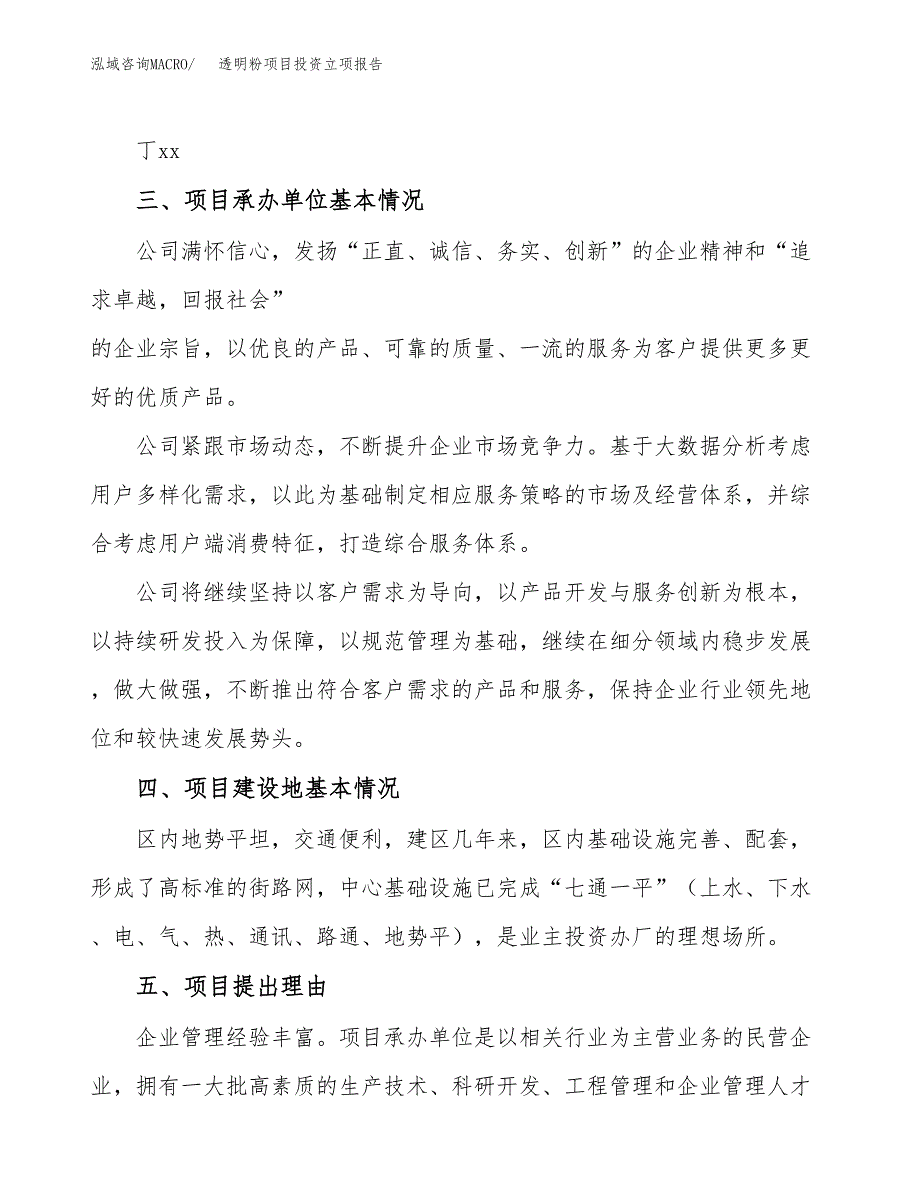 泓域咨询MACRO/ 透明粉项目投资立项报告
丁xx
三、项目承办单位基本情况
公司满怀信心，发扬“正直、诚信、务实、创新”的企业精神和“追
求卓越，回报社会”
的企业宗旨，以优良的产品、可靠的质量、一流的服务为客户提供更多更
好的优质产品。
公司紧跟市场动态，不断提升企业市场竞争力。基于大数据分析考虑
用户多样化需求，以此为基础制定相应服务策略的市场及经营体系，并综
合考虑用户端消费特征，打造综合服务体系。
公司将继续坚持以客户需求为导向，以产品开发与服务创新为根本，
以持续研发投入为保障，以规范管理为基础，继续在细分领域内稳步发展
，做大做强，不断推出符合客户需求的产品和服务，保持企业行业领先地
位和较快速发展势头。
四、项目建设地基本情况
区内地势平坦，交通便利，建区几年来，区内基础设施完善、配套，
形成了高标准的街路网，中心基础设施已完成“七通一平”（上水、下水
、电、气、热、通讯、路通、地势平），是业主投资办厂的理想场所。
五、项目提出理由
企业管理经验丰富。项目承办单位是以相关行业为主营业务的民营企
业，拥有一大批高素质的生产技术、科研开发、工程管理和企业管理人才